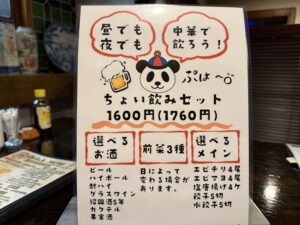 昼でも
夜でも
中華で
飲ろう！
ぷはー
ちょい飲みセット
1600円(1760円)
選べる
お酒
前菜3種
選べる
メイン
ビール
ハイボール
酎ハイ
グラスワイン
紹興酒5年
カクテル
果実酒
日によって
変わる場合が
あります。
エビチリ4尾
エビマヨ4尾
塩唐揚げ4ケ
餃子5切
水餃子5切